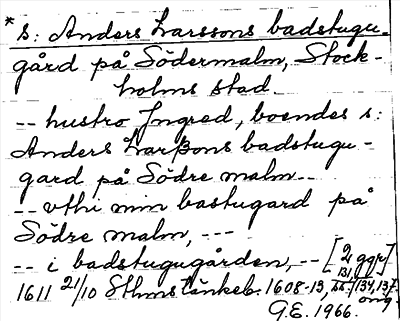 * S: Anders Larssons badstugu-
gård på Södermalm, Stock-
holms stad.
-- hustro Jngred, boendes s:
Anders Larßons badstugu-
gard på Södre malm --
-- vthi min bastugard på
Södre malm, ---
-- i badstugugården, -- [2 ggr]
1611 21/10 Sthms tänkeb. 1608-13, 131, 134, 137.
omg.
G.E. 1966.